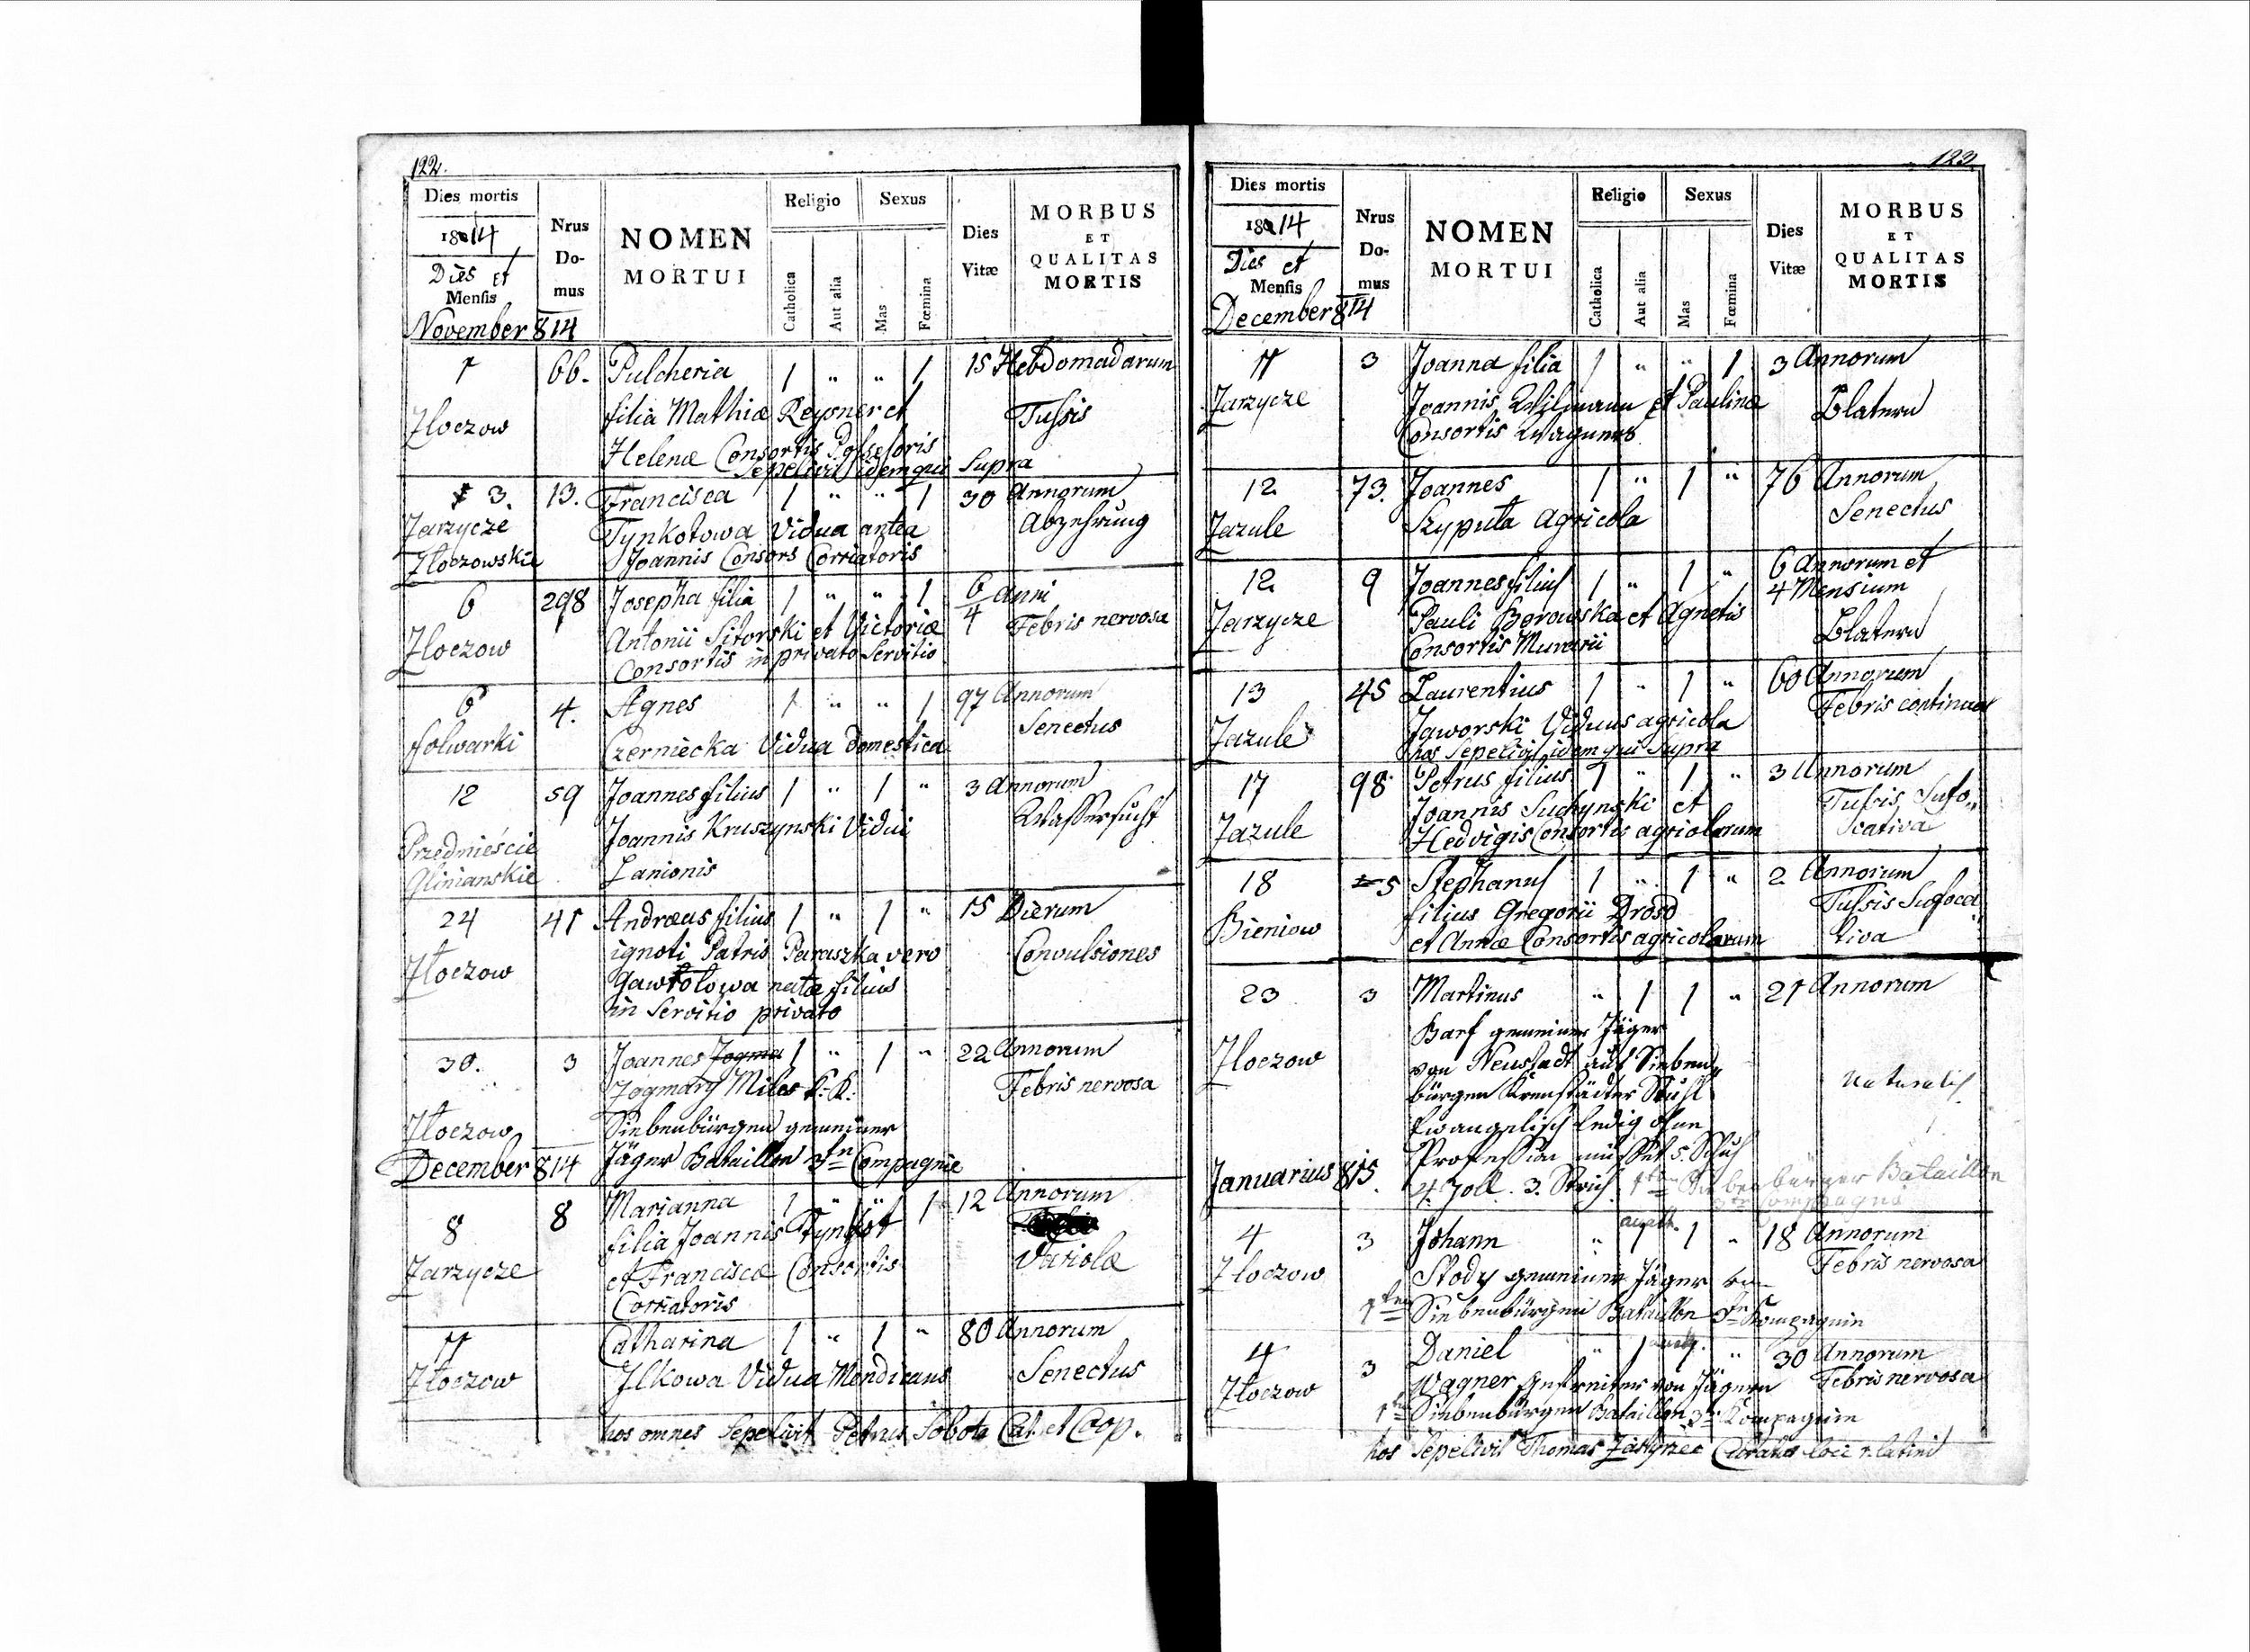 122.
Dies mortis
1814
Dies et
Mensis
November 814
Nrus
Do-
mus
NOMEN
MORTUI
Religio
Catholica
Aut alia
Sexus
Mas
Fœmina
Dies
Vitæ
MORBUS
ET
QUALITAS
MORTIS
1 66. Pulcheria 1 " " 1 15 Hebdomadarum
Złoczow filia Mathiæ Reysner et Tussis
Helenæ Consortis Possessoris
Sepelivit idem qui Supra
3. 13. Francisca 1 " " 1 30 Annorum
Jarzycze Tynkotowa Vidua antea Abzehrung
Złoczowskie Joannis Consors Corriatoris
6 298 Josepha filia 1 " " 1 6/4 Anni
Złoczow Antonii Sitorski et Victoriæ Febris nervosa
Consortis in privato Servitio
6 4. Agnes 1 " " 1 97 Annorum
folwarki Czerniecka Vidua domestica Senectus
12 59 Joannes filius 1 " 1 " 3 Annorum
Przedmieście Joannis Kruszynski Vidui Wassersucht
Glinianskie Lanionis
24 41 Andræas filius 1 " 1 " 15 Dierum
Złoczow ignoti Patris Paraszka vero Convulsiones
Gawtotowa natæ filius
in Servitio privato
30. 3 Joannes Zogma 1 " 1 " 22 Annorum
Zogmany Miles K: K: Febris nervosa
Złoczow Siebenbürgen gemeiner
December 814 Jäger Bataillon 3tn Compagnie
8 8 Marianna 1 " " 1 12 Annorum
filia Joannis Tynkot
Jarzycze et Franciscæ Consortis Variolæ
Corriatoris
11 Catharina 1 " 1 " 80 Annorum
Złoczow Ilkowa Vidua Mendicans Senectus
hos omnes Sepelivit Petrus Sobota Cat. et Coop.
123
Dies mortis
1814
Dies et
Mensis
December 814
Nrus
Do-
mus
NOMEN
MORTUI
Religio
Catholica
Aut alia
Sexus
Mas
Fœmina
Dies
Vitæ
MORBUS
ET
QUALITAS
MORTIS
11 3 Joanna filia 1 " " 1 3 Annorum
Jarzycze Joannis Wilmann et Paulinæ Blatern
Consortis Wagners
12 73. Joannes 1 " 1 " 76 Annorum
Zazule Szyputa Agricola Senectus
12 9 Joannes filius 1 " 1 " 6 Annorum et
4 Mensium
Jarzycze Pauli Borowska et Agnetis
Consortis Murarii Blatern
13 45 Laurentius 1 " 1 " 60 Annorum
Zazule Jaworski Viduus agricola Febris continua
hos Sepelivit idem qui Supra
17 98 Petrus filius 1 " 1 " 3 Annorum
Joannis Suchynski et Tussis Sufo„
Zazule Hedvigis Consortis agricolarum cativa
18 5 Stephanus 1 " 1 " 2 Annorum
Bieniow filius Gregorii Drosd Tussis Sufoca
et Annæ Consortis agricolarum tiva
23 3 Martinus " 1 1 " 21 Annorum
Barf gemeiner Jäger
Złoczow von Neustadt aus Sieben„
bürgen Kronstädter Stuhl Naturalis
Evangelisch ledig ohne
Profession misset 5. Schuh
Januarius 815 4. Zoll. 3. Strich. 1ten Siebenbürger Bataillon
4 3 Johann " 1 1 " 18 Annorum
Złoczow Stody gemeiner Jäger von Febris nervosa
1ten Siebenbürgen Bataillon 3tn Kompagnie
4 3 Daniel " 1 " 30 Annorum
Złoczow Wagner Gefreiter von Jägern Febris nervosa
1ten Siebenbürgen Bataillon 3tn Kompagnie
hos Sepelivit Thomas Curatus loci r. latini